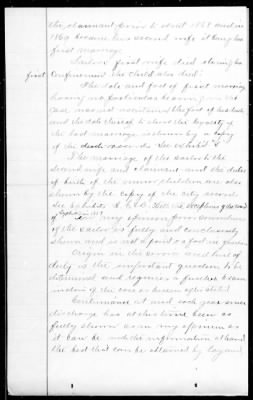 the claimant prior to
1869 because his second wife it being his
first marriage.
Sailor's first wife died during her
first confinement the child also died.
The date and fact of first marriage
having no particular bearing upon the
case was not
and the date thereof to show the legality of
the last marriage is shown by a copy
of the death record. See exhibit
The marriage of the sailor to the
second wife and claimant and the dates
of birth of the minor children are also
shown by the copy of the city record.
See exhibits
In my opinion prior soundness
of the sailor is fully and conclusively
shown and is not a point
Origin in the service and line of
duty is the important question to be
determined and requires a further exam-
ination of the case as herein after stated.
Continuance at and each year since
discharge has at this time been as
fully shown as in my opinion as
it can be with the information at hand
the best that can be obtained by lay